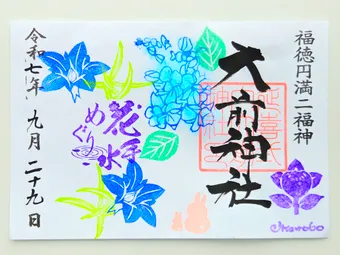 福徳円満二福神
大前神社
花手水
めぐり
令和七年 九月 二十九日